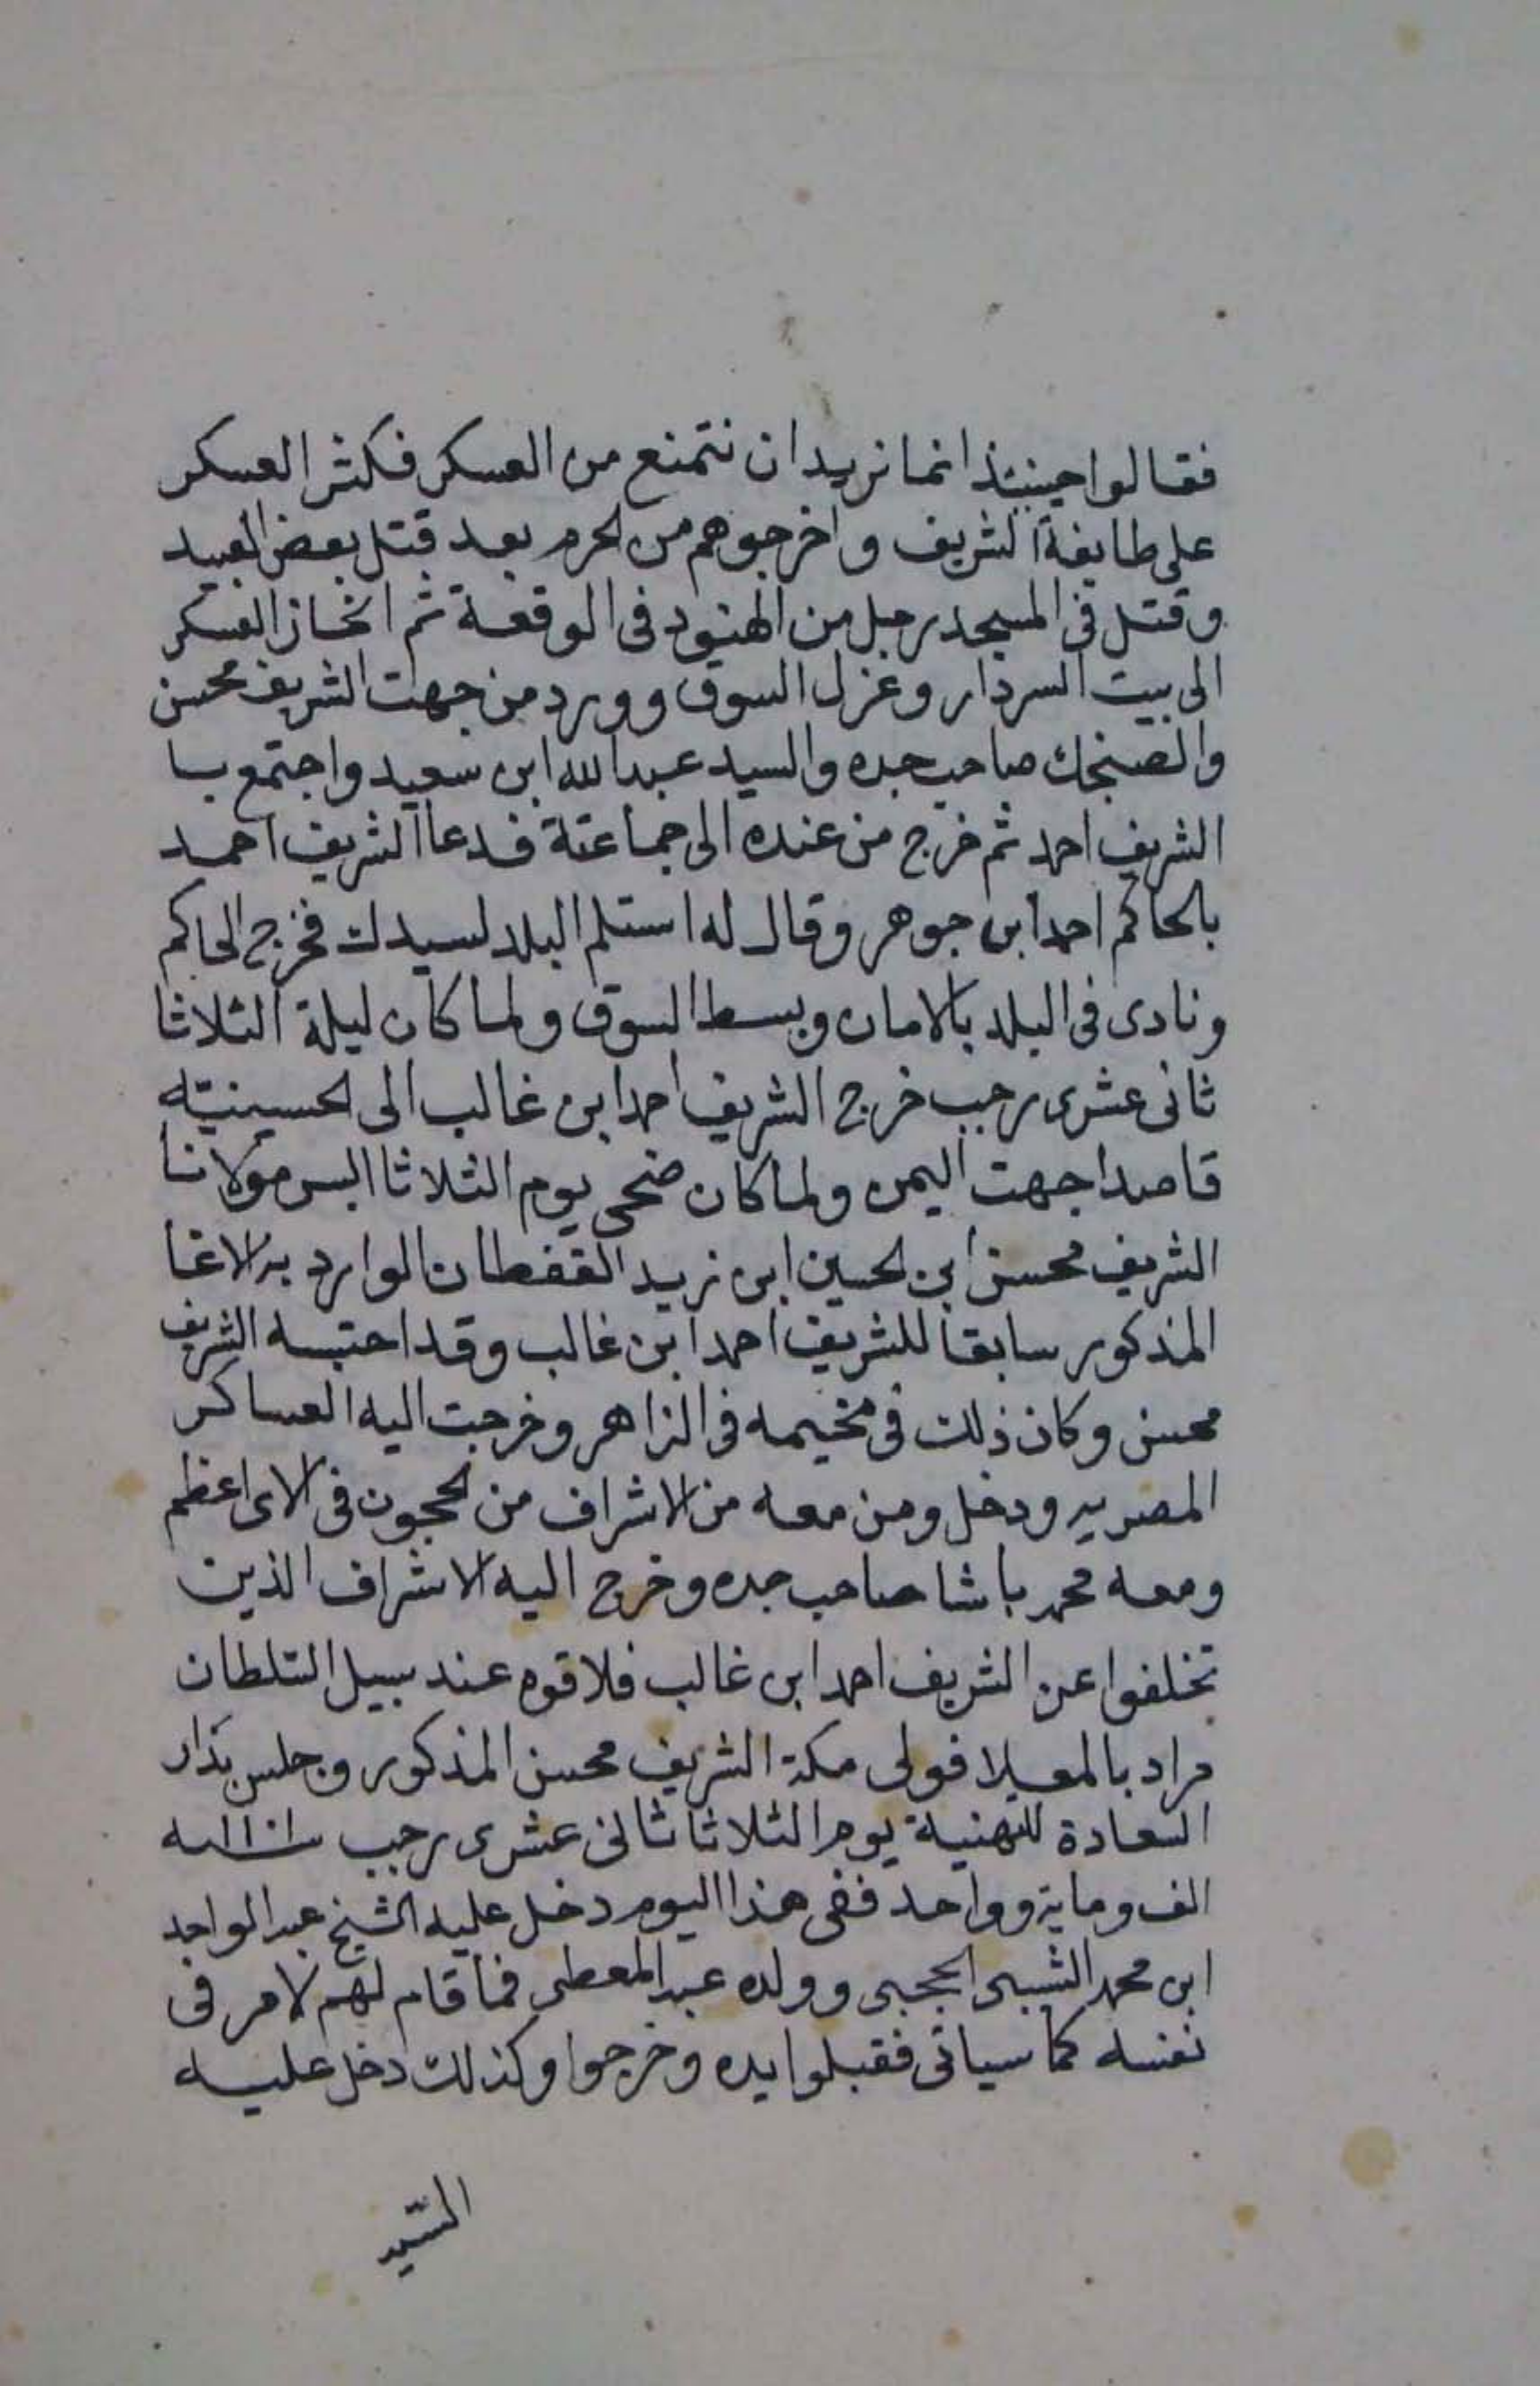 فقالوا حينئذ انما نريد ان نتمنع من العسكر فكثر العسكر
على طايفة الشريف واخرجوهم من الحرم بعد قتل بعض العبيد
وقتل في المسجد رجل من الهنود في الوقعة ثم انحاز العسكر
الى بيت السردار وعزل السوق وورد من جهت الشريف محسن
والصنجك صاحب جده والسيد عبدالله ابن سعيد واجتمع با
الشريف احمد ثم خرج من عنده الى جماعتة فدعا الشريف احمد
بالحاكم احمد ابن جوهر وقال له استلم البلد لسيدك فخرج الحاكم
ونادى في البلد بالامان وبسط السوق ولما كان ليلة الثلاثا
ثاني عشرى رجب خرج الشريف احمد ابن غالب الى الحسينيته
قاصدا جهت اليمن ولما كان ضحى يوم الثلاثا البس مولانا
الشريف محسن ابن الحسين ابن زيد القفطان الوارد به الاغا
المذكور سابقا للشريف احمد ابن غالب وقد احتبسه الشريف
محسن وكان ذلك في مخيمه في الزاهر وخرجت اليه العساكر
المصريه ودخل ومن معه من الاشراف من الحجون في الاى اعظم
ومعه محمد باشا صاحب جده وخرج اليه الاشراف الذين
تخلفوا عن الشريف احمد ابن غالب فلاقوه عند سبيل السلطان
مراد بالمعلا فولى مكة الشريف محسن المذكور وجلس بدار
السعادة للتهنية يوم الثلاثا ثاني عشرى رجب سنة ١١٠١
الف وماية وواحد ففي هذا اليوم دخل عليه الشيخ عبد الواحد
ابن محمد الشيبى الحجبى وولده عبد المعطى فما قام لهم لامر في
نفسه كما سياتى فقبلوا يده وخرجوا وكذلك دخل عليه
السيد